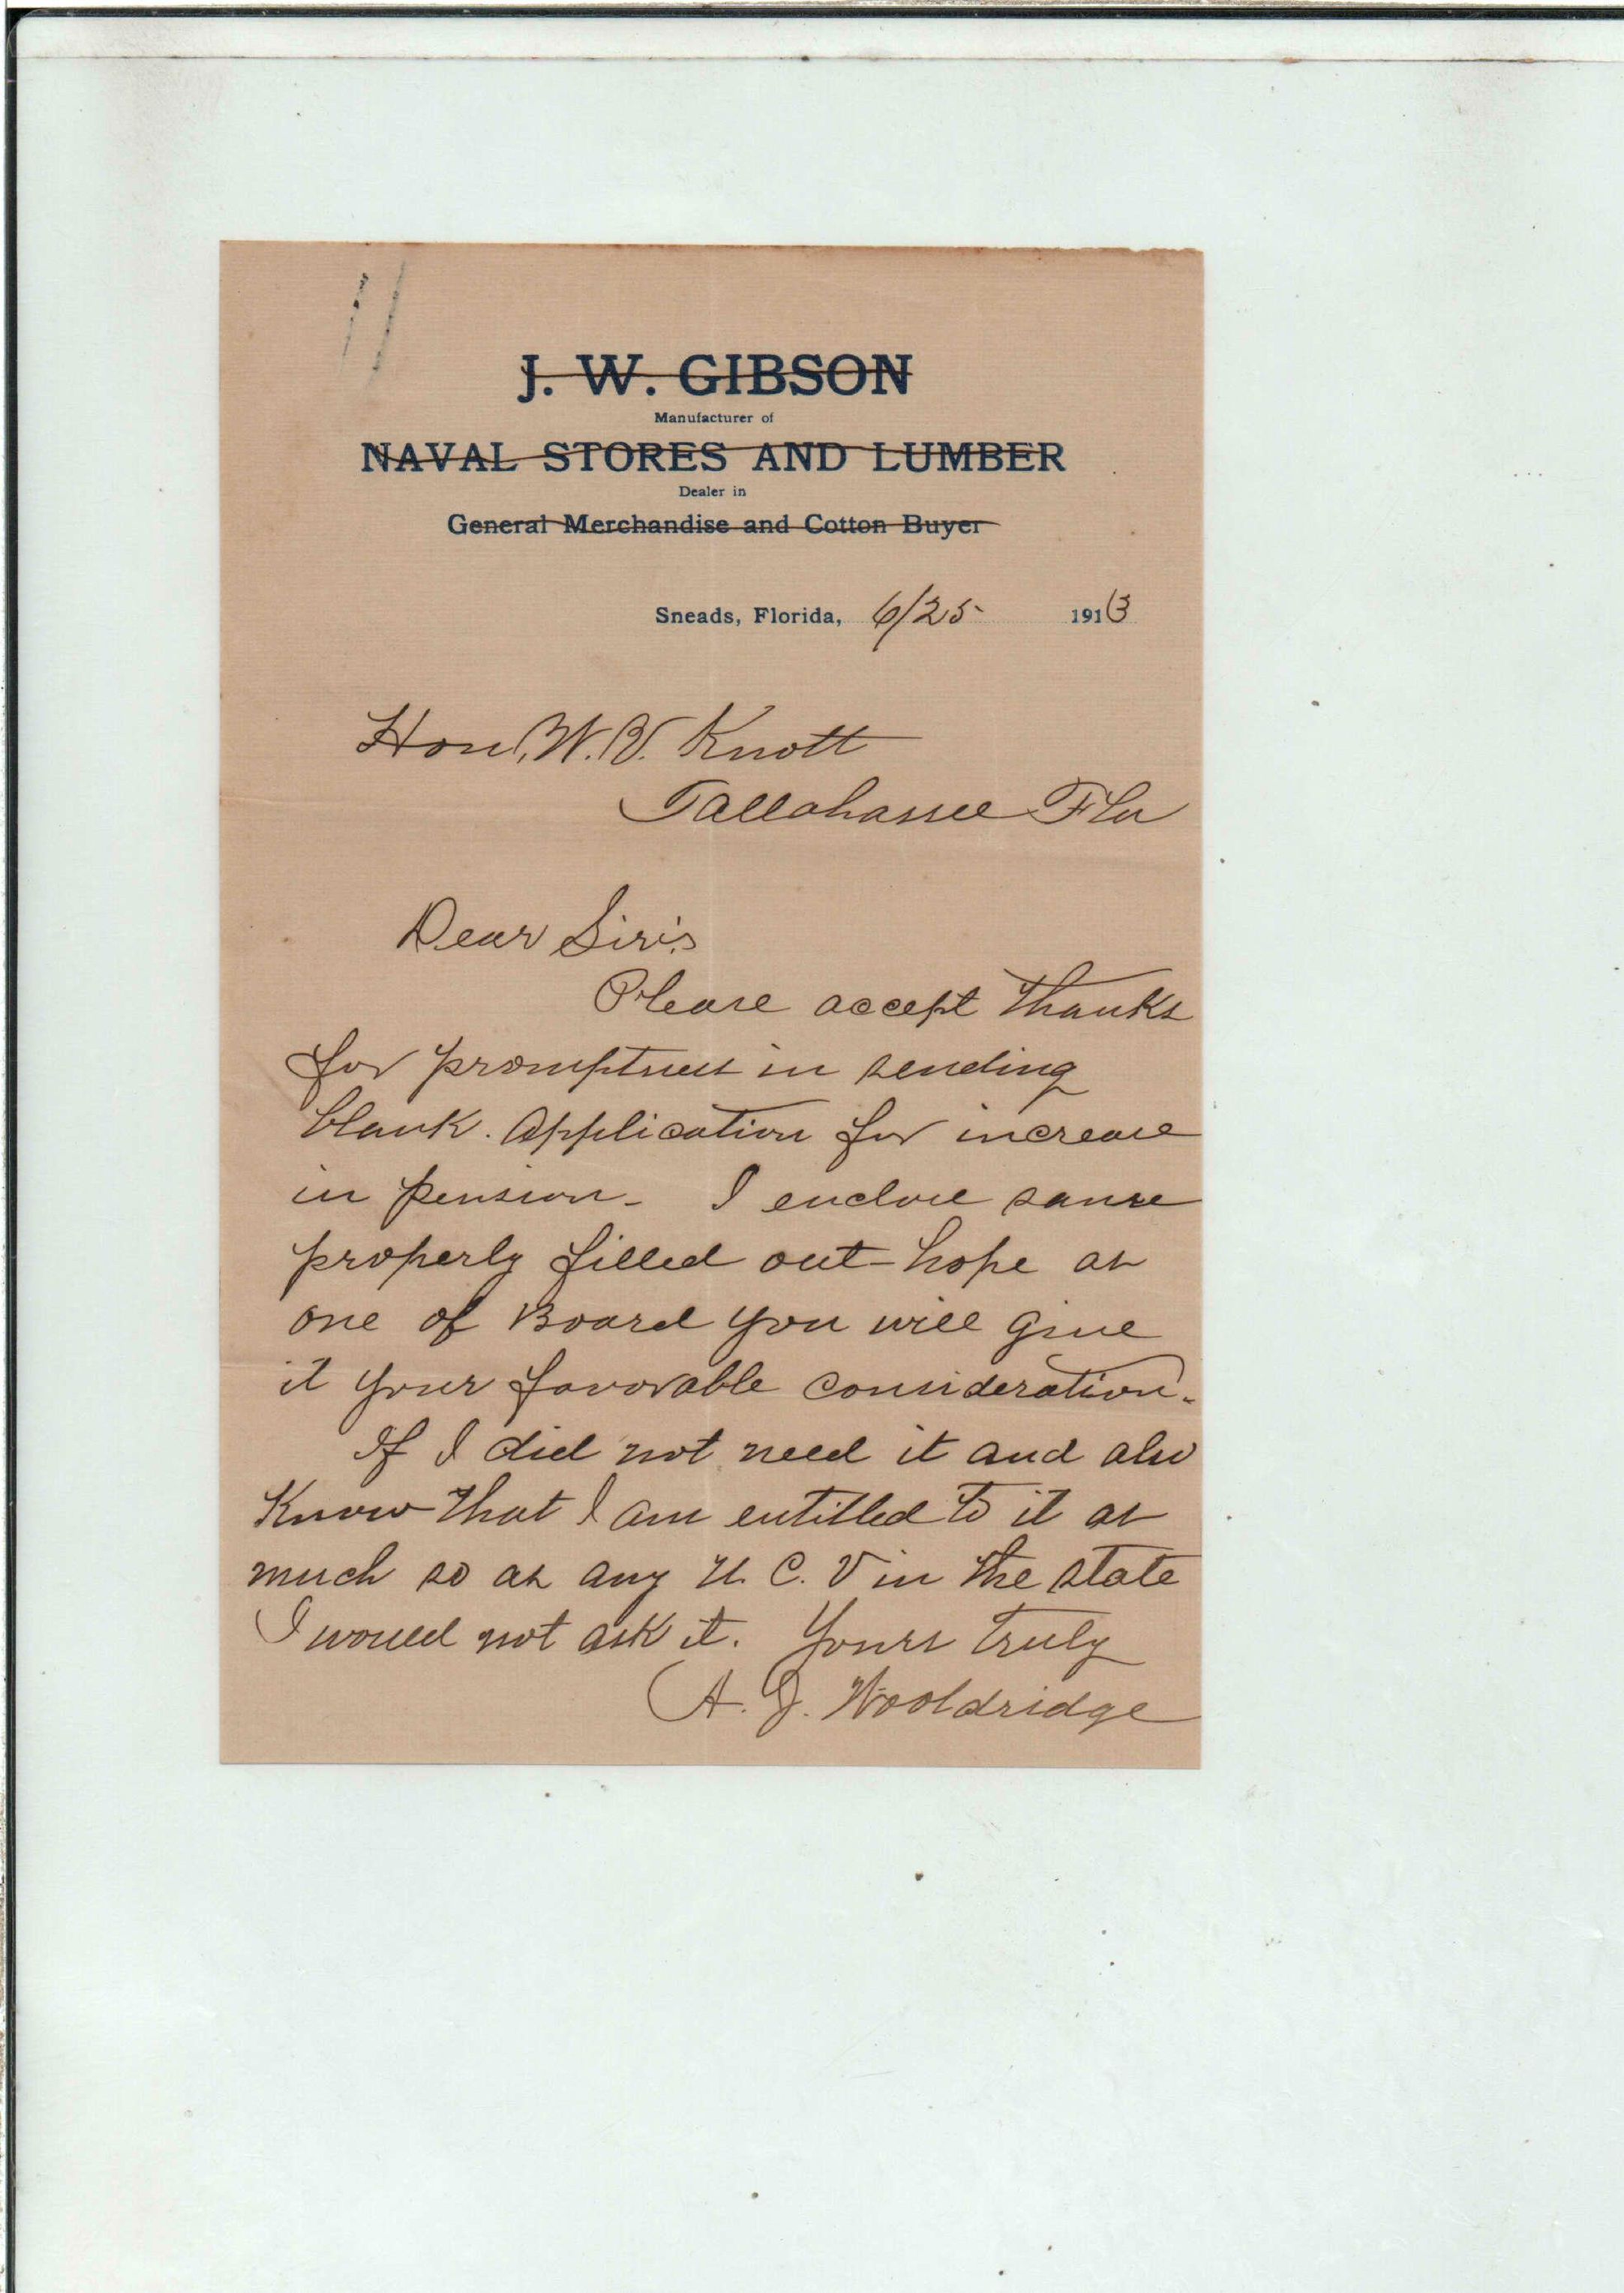 J. W. GIBSON
Manufacturer of
NAVAL STORES AND LUMBER
Dealer in
General Merchandise and Cotton Buyer
Sneads, Florida, 6/25 1913
Hon. W. V. Knott
Tallahassee Fla
Dear Sir's
Please accept thanks
for promptness in sending
blank. Application for increase
in pension - I enclose same
properly filled out - hope as
one of Board you will give
it your favorable consideration.
If I did not need it and also
Know that I am entitled to it as
much so as any U. C. V in the state
I would not ask it. Yours truly
A. J. Wooldridge